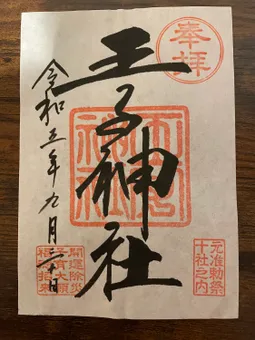 奉拝
王子神社
令和五年九月三十日
元准勅祭
十社之内
開運除災